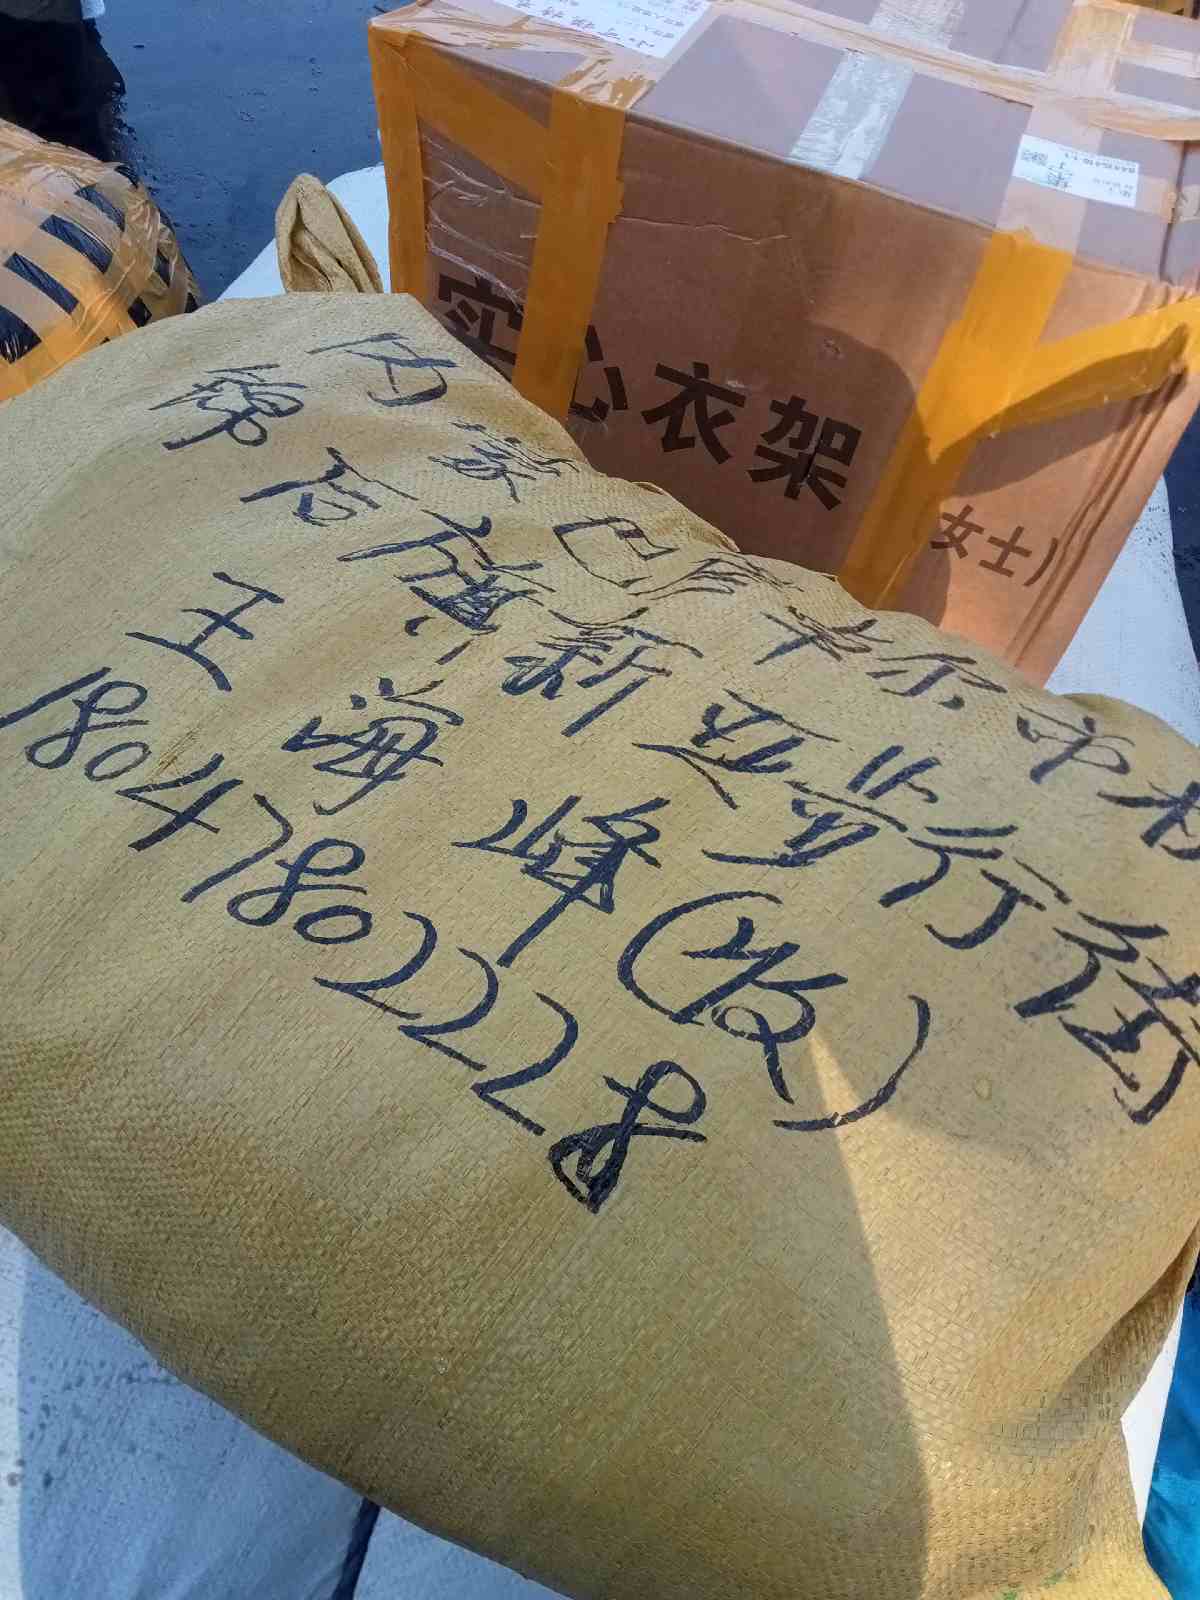 实心衣架
女士)
内蒙巴彦卡尔市杭
锦后旗新亚步行街
王海峰(收)
18047802228